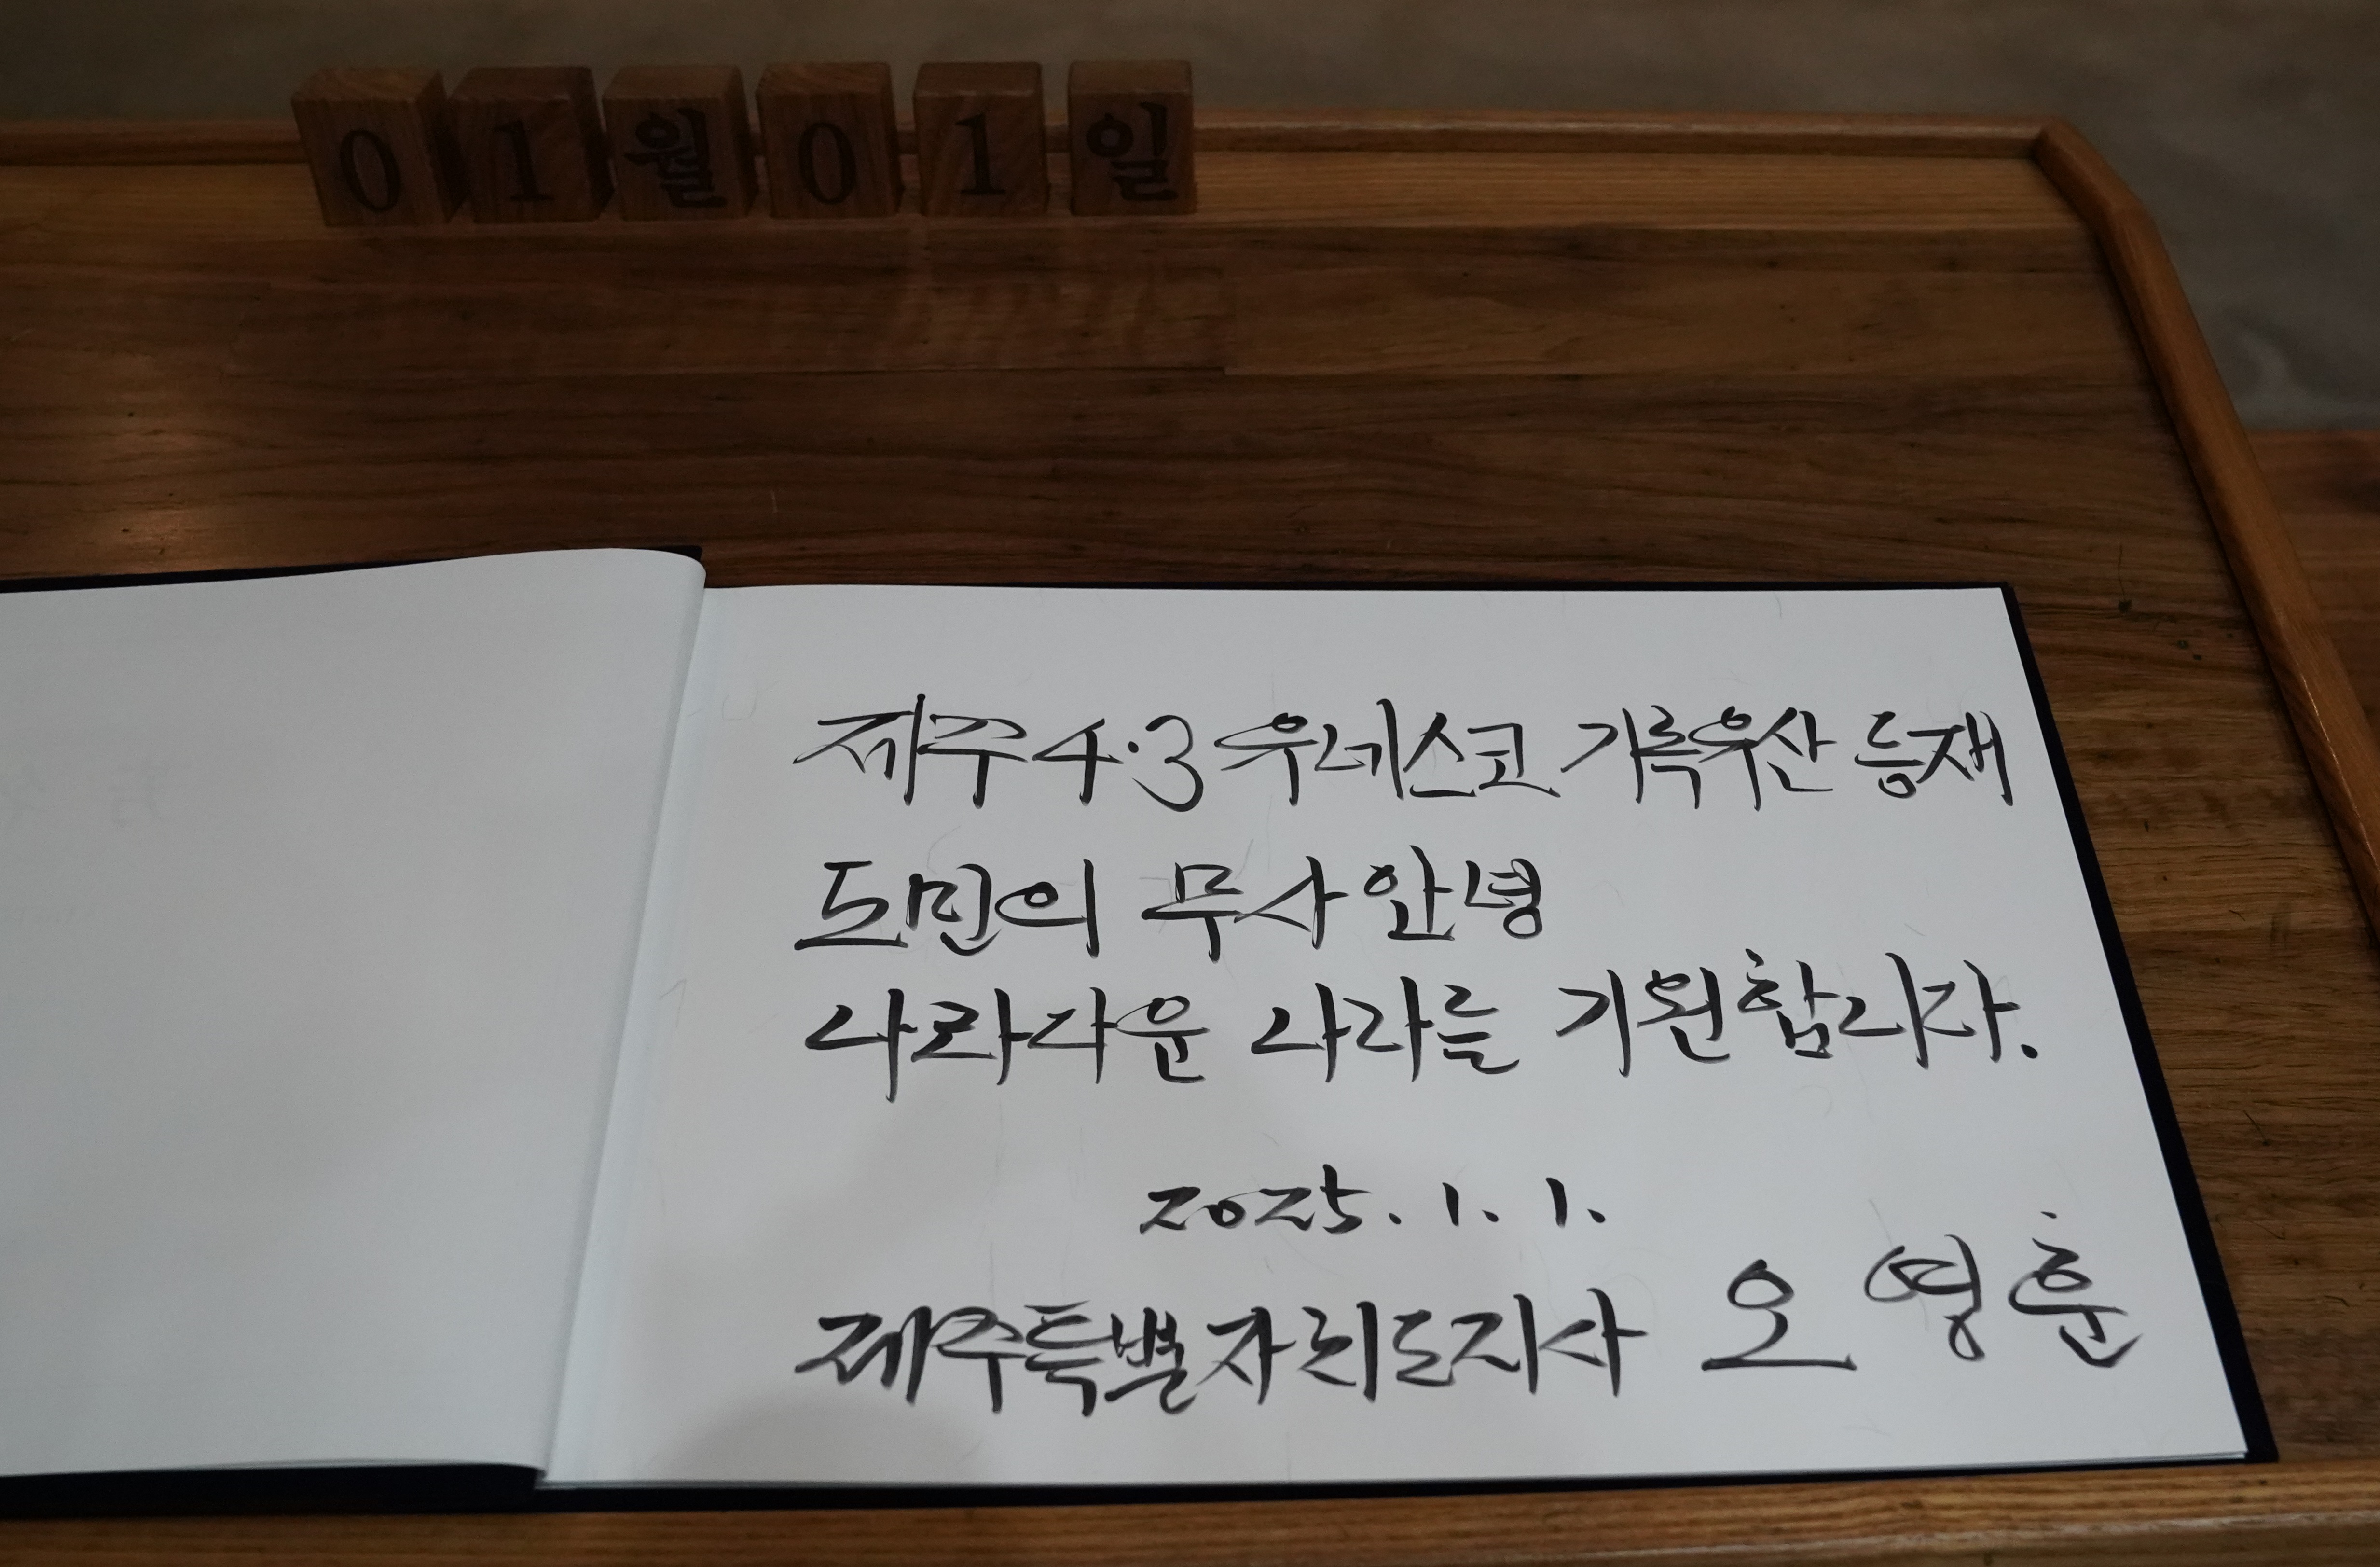 01월01일
제주4·3유네스코 기록유산 등재
도민의 무사안녕
나라다운 나라를 기원합니다.
2025. 1. 1.
제주특별자치도지사 오영훈